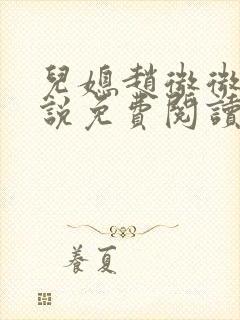 兒媳趙微微
說免費閱讀
養夏